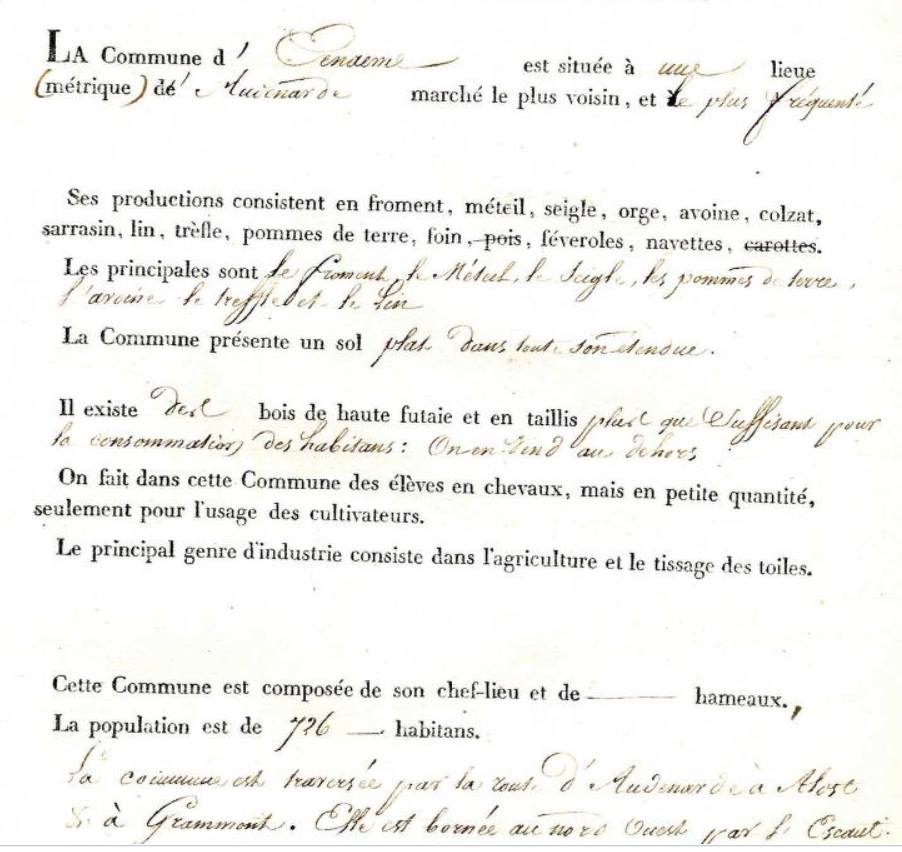 LA Commune d' Eenaeme est située à une lieue
(métrique) dé' Audenarde marché le plus voisin, et le plus fréquenté
Ses productions consistent en froment, méteil, seigle, orge, avoine, colzat,
sarrasin, lin, trèfle, pommes de terre, foin, pois, féveroles, navettes, carottes.
Les principales sont le froment, le Méteil, le Seigle, les pommes de terre,
l'avoine le treffle et le Lin
La Commune présente un sol plat dans toute son étendue.
Il existe des bois de haute futaie et en taillis plus que Suffisant pour
la consommation des habitans: On en vend au dehors
On fait dans cette Commune des élèves en chevaux, mais en petite quantité,
seulement pour l'usage des cultivateurs.
Le principal genre d'industrie consiste dans l'agriculture et le tissage des toiles.
Cette Commune est composée de son chef-lieu et de ——— hameaux.,
La population est de 726 — habitans.
La commune est traversée par la route d'Audenarde à Alost
& à Grammont. Elle est bornée au nord Ouest par l'Escaut.